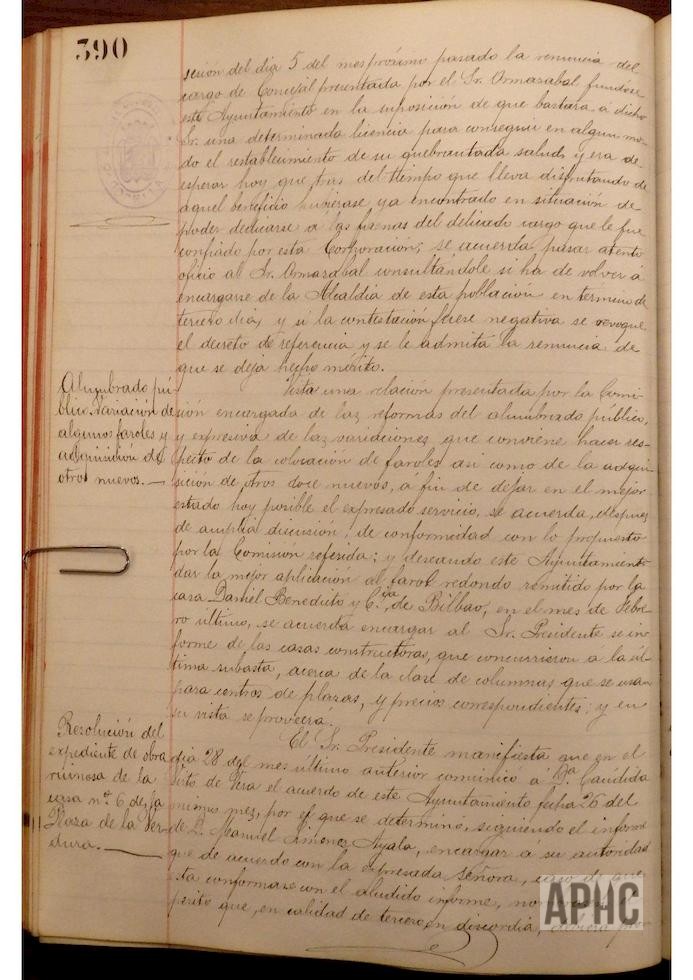 390
sesión del dia 5 del mes próximo pasado la renuncia del
cargo de Concejal presentada por el Sr. Ormazabal fundose
este Ayuntamiento en la suposición de que bastara á dicho
Sr. una determinada licencia para conseguir en algun mo-
do el restablecimiento de su quebrantada salud, y era de
esperar hoy que tras del tiempo que lleva disfrutando de
aquel beneficio hubierase ya encontrado en situación de
poder dedicarse á las faenas del delicado cargo que le fue
confiado por esta Corporación, se acuerda pasar atento
oficio al Sr. Ormazabal consultándole si ha de volver á
encargarse de la Alcaldia de esta población en termino de
tercero dia, y si la contestación fuere negativa se revoque
el decreto de referencia y se le admita la renuncia de
que se deja hecho mérito.
Alumbrado pú-
blico. Variación de
algunos faroles y
adquisición de
otros nuevos. —
Vista una relación presentada por la Comi-
sión encargada de las reformas del alumbrado público,
y expresiva de las variaciones que conviene hacer res-
pecto de la colocación de faroles asi como de la adqui-
sición de otros doce nuevos, á fin de dejar en el mejor
estado hoy posible el expresado servicio, se acuerda, despues
de amplia discusión, de conformidad con lo propuesto
por la Comision referida; y deseando este Ayuntamiento
dar la mejor aplicación al farol redondo remitido por la
casa Daniel Benedicto y C.ia, de Bilbao, en el mes de Febre-
ro último, se acuerda encargar al Sr. Presidente se in-
forme de las casas constructoras, que concurrieron á la úl-
tima subasta, acerca de la clase de columnas que se usan
para centros de plazas, y precios correspondientes; y en
su vista se proveera.
Resolución del
expediente de obra
ruinosa de la
casa nº 6 de la
Plaza de la Ver-
dura. —
El Sr. Presidente manifiesta que en el
dia 28 del mes último anterior comunicó á Dª Candida
de Vera el acuerdo de este Ayuntamiento fecha 26 del
mismo mes, por el que se determinó, siguiendo el informe
de D. Manuel Jimenez Ayala, encargar á su autoridad
que de acuerdo con la expresada Señora, caso de que
esta conformase con el aludido informe, no
perito que, en calidad de tercero en discordia,
APHC